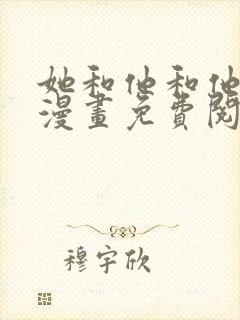 她和他和他
漫畫免費閱
穆宇欣